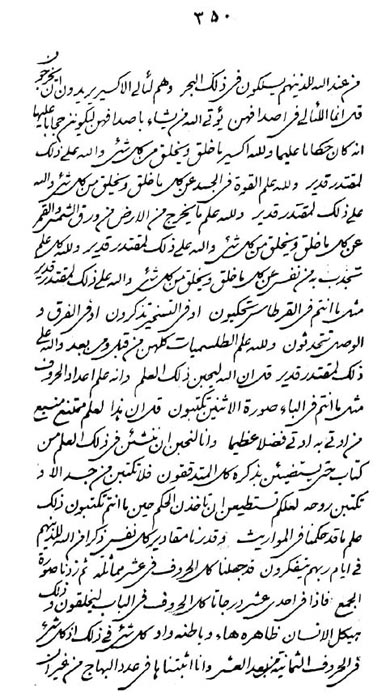 ٣٥٠
من عند الله للذينهم يسلكون في ذلك البحر وهم لئالي الاكسير يريدون ان يخرجون
قل انما اللئالي في اصدافهن يؤتي الله من يشاء باصدافهن ليكونن حجابا عليها
انه كان حكاما عليما ولله اكسير ما خلق ويخلق من كل شئ والله على ذلك
لمقتدر قدير ولله علم القوة في الجسد عن كل ما خلق ويخلق من كل شئ والله
على ذلك لمقتدر قدير ولله علم ما يخرج من الارض من ورق الشمس والقمر
عن كل ما خلق ويخلق من كل شئ والله على ذلك لمقتدر قدير ولله كل علم
تنجذب به من نفس عن كل ما خلق ويخلق من كل شئ والله على ذلك لمقتدر قدير
مثل ما انتم في القرطاس تحكيون او في النسخ تذكرون او في الفرق و
الوصى تتحدثون ولله علم الطلسميات كلهن من قبل ومن بعد والله على
ذلك لمقتدر قدير قل ان الله ليحبن ذلك العلم وانه علم اعداد الحروف
مثل ما انتم في الباء صورة الاثنين تكتبون قل ان هذا لعلم ممتنع منيع
من اوتي به اوتي فضلا عظيما وانا لنحبن ان ننشئن في ذلك العلم من
كتاب حتى يستضيئن بذكره كل المتدققون فلا تكتبن من جسد الا و
تكتبن روحه لعلكم تستطيعن ان تاخذن الحكم حين ما انتم تكتبون ذلك
علم ما قد حكمنا في المواريث وقدرنا مقادير كل نفس ذكرا من الله للذينهم
في ايام ربهم يتفكرون قد جعلنا كل الحروف في عشر مماثله ثم زدنا صورة
الجمع فاذا في احدى عشر درجاتا كل الحروف في الباب ليخلقون وذلك
هيكل الانسان ظاهره هاء وباطنه واو كل شئ في ذلك اذ كل شئ
في الحروف الثمانية من بعد العشر وانا اثبتناها في عدد البهاج من غير ان